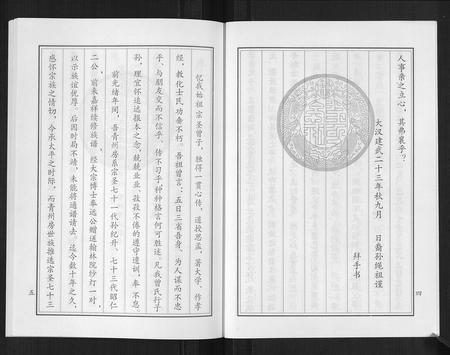 人事亲之立心，其弗衰乎？
大汉建武二十三年秋九月　日裔孙绳祖谨
拜手书
四
忆我始祖宗圣曾子，独得一贯心传，道授思孟，著大学、作孝
经，教化士民功焘不朽。吾祖曾言：五日三省吾身，为人谋而不忠
乎，与朋友交而不信乎，传不习乎，种种格言何可胜述。凡我曾氏行子
孙，理宜怀追远报本之念，兢兢业业、孜孜不倦的遵守遗训，奉不怠
前光绪年间，吾青州房系宗圣七十一代孙纪升、七十三代昭仁
二公，前来嘉祥续修族谱，经大宗博士奉远公赠送翰林院纱灯一对，
以示族谊优厚，后因时局不靖，未能将通谱请去，迄今数十年之久，
感怀宗族之情切，今承太平之时际，而青州房世族推选宗圣七十三
五